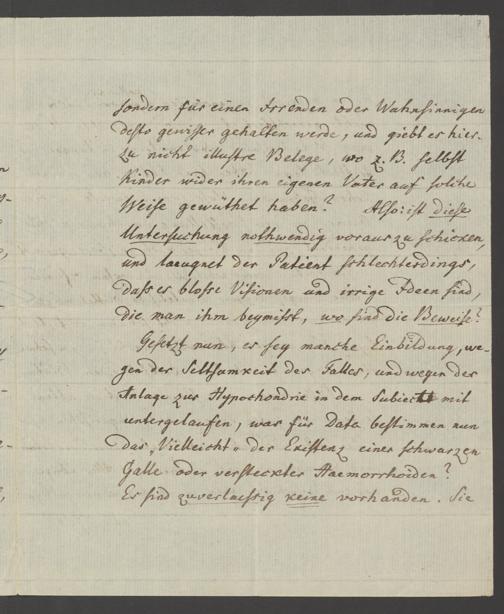 sondern für einen Irrenden oder Wahnsinnigen
desto gewisser gehalten werde, und giebt es hier-
zu nicht illustre Belege, wo z. B. selbst
Kinder wider ihren eigenen Vater auf solche
Weise gewüthet haben? Also: ist diese
Untersuchung nothwendig vorauszuschicken,
und laeugnet der Patient schlechterdings,
dass es blosse Visionen und irrige Ideen sind,
die man ihm beymisst, wo sind die Beweise?
Gesetzt nun, es sey manche Einbildung, we-
gen der Seltsamkeit des Falles, und wegen der
Anlage zur Hypochondrie in dem Subiect mit
untergelaufen, was für Data bestimmen nun
das „Vielleicht" der Existenz einer schwarzen
Galle oder versteckter Haemorrhoiden?
Es sind zuverlaessig keine vorhanden. Sie